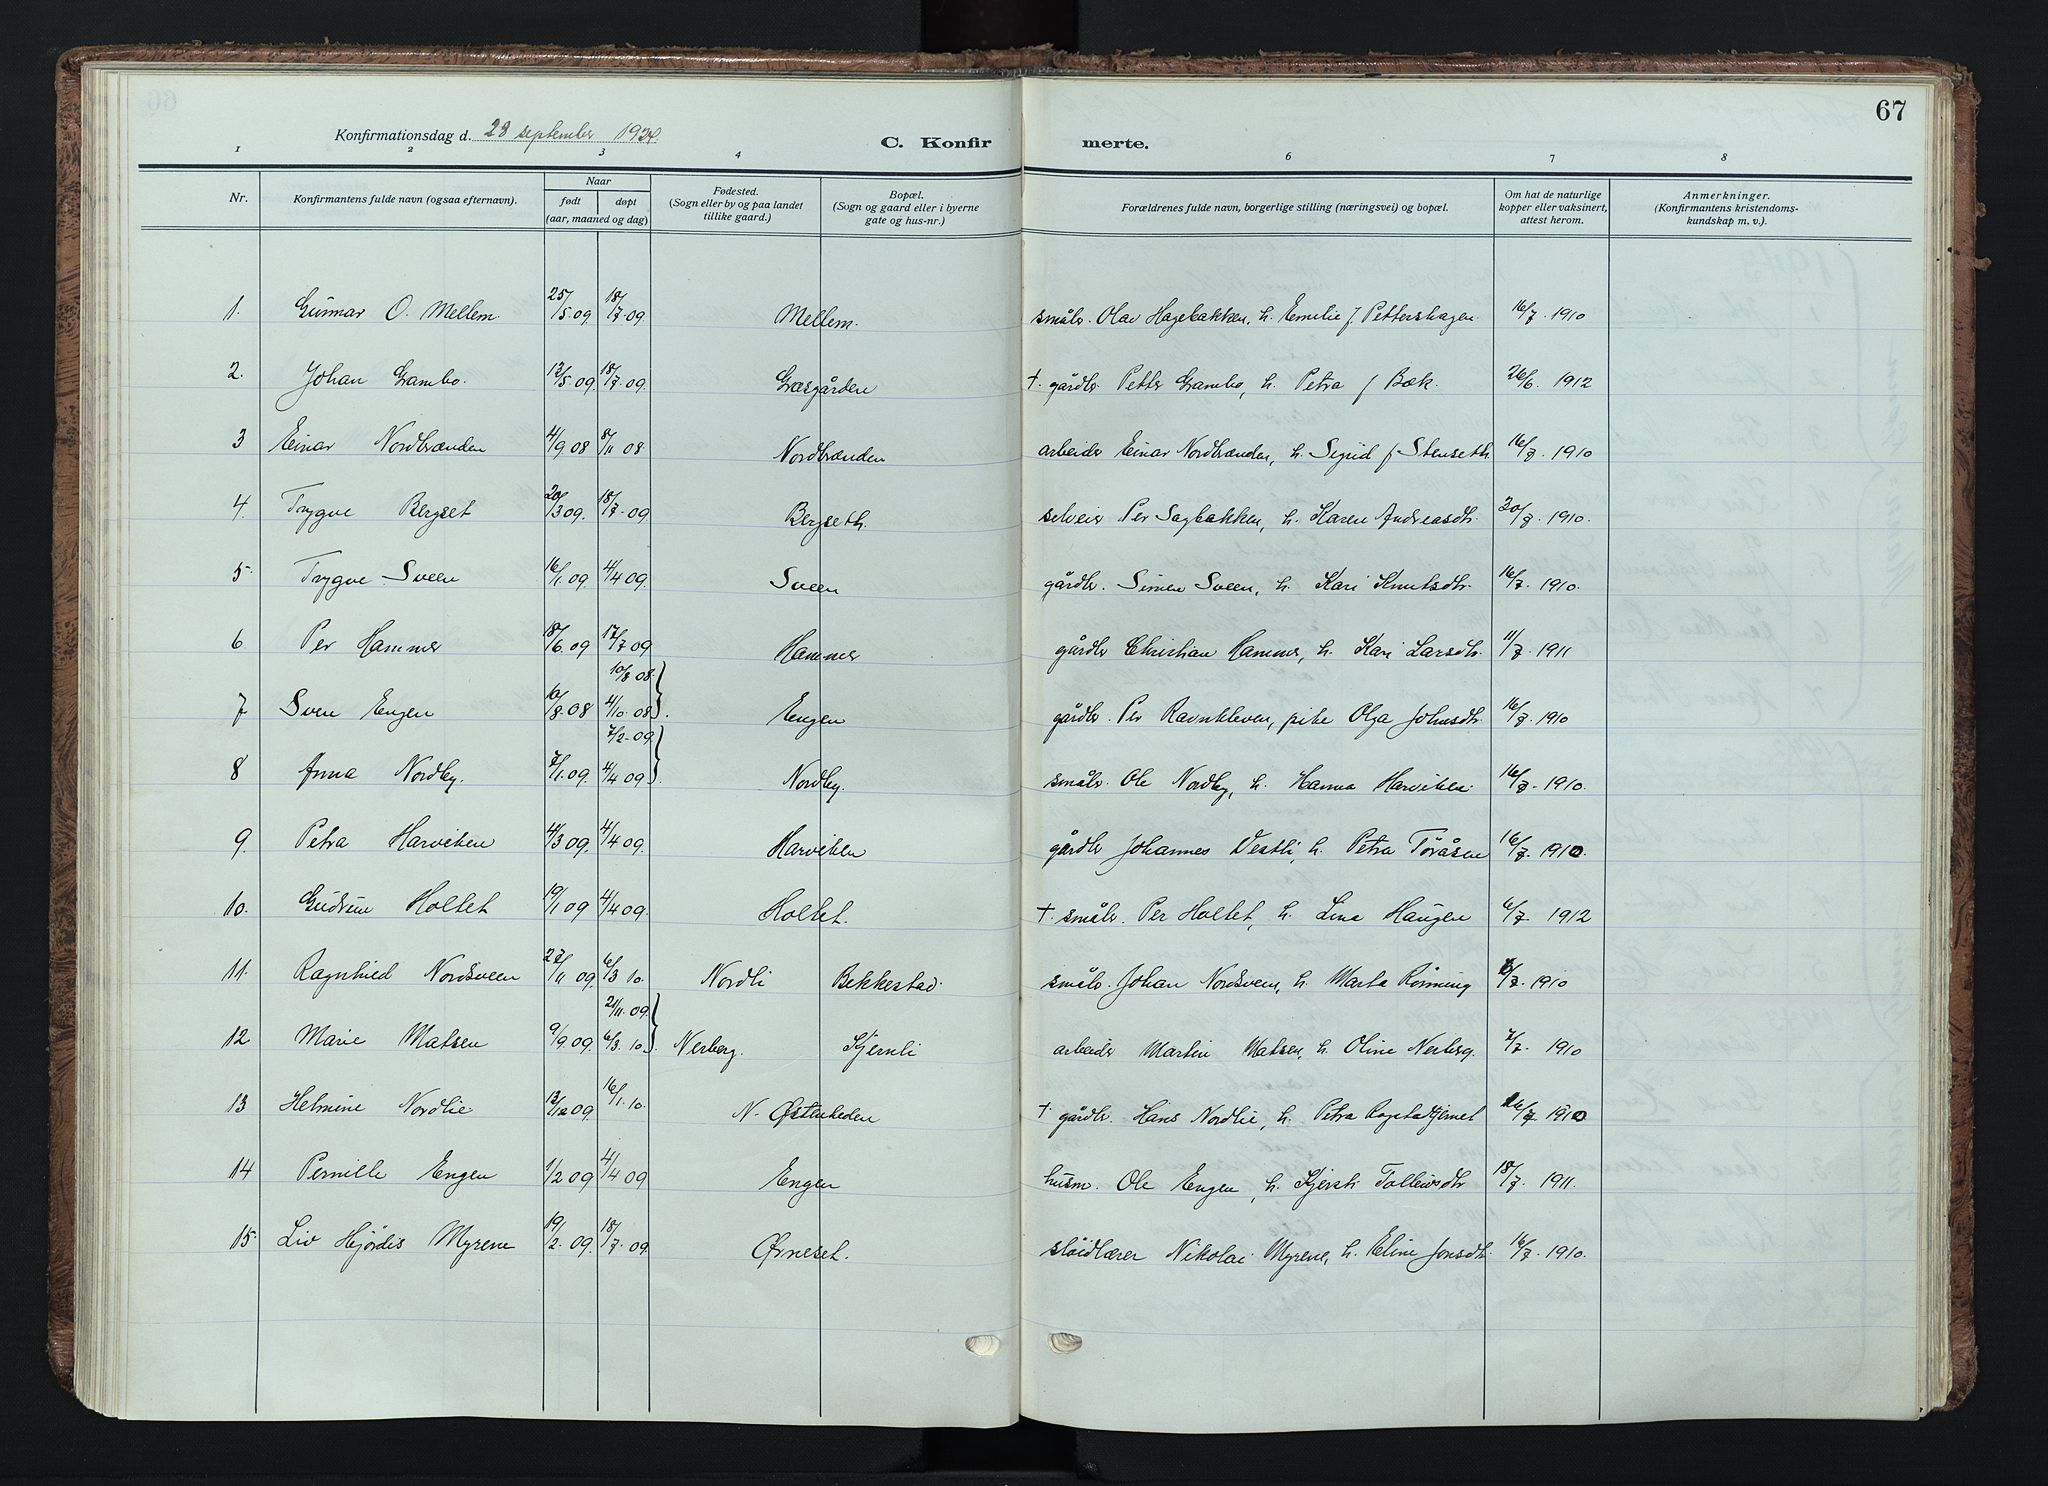 67
Konfirmationsdag d. 28 september 1924
C. Konfirmerte.
1 2 3 4 6 7 8
Nr. Konfirmantens fulde navn (ogsaa efternavn). Naar født døpt (aar, maaned og dag) Fødested. (Sogn eller by og paa landet tillike gaard.) Bopæl. (Sogn og gaard eller i byerne gate og hus-nr.) Forældrenes fulde navn, borgerlige stilling (næringsvei) og bopæl. Om hat de naturlige kopper eller vaksinert, attest herom. Anmerkninger. (Konfirmantens kristendoms-kundskap m. v.).
1. Gunnar O. Mellem. 25/5 09. 18/7 09 Mellem. småbr. Olav Hagebakken, h. Emilie f. Pettershagen. 16/7 1910
2. Johan Grambo. 13/5 09. 18/7 09. Græsgården † gårdbr. Petter Grambo, h. Petra f Bæk. 26/6 1912
3 Einar Nordbrænden 4/9 08 8/11 08 Nordbrænden arbeider Einar Nordbrænden, h. Sigrid f Stenseth 16/7. 1910
4. Trygve Bergset 20/3 09. 18/7 09 Bergseth. selveier Per Sagbakken, h. Karen Andreasdtr. 20/7. 1910.
5. Trygve Sveen 16/1 09 4/4 09. Sveen gårdbr. Simen Sveen, h. Kari Knutsdtr. 16/7. 1910.
6 Per Hammer 18/6. 09 17/7 09 Hammer gårdbr Christian Hammer, h. Kari Larsdtr. 11/7. 1911
10/8 08.
7 Sven Engen 10/8. 08 4/10. 08 Engen gårdbr. Per Ravnkleven, pike Olga Johnsdtr. 16/7. 1910
7/2-09.
8 Anna Nordby. 7/1. 09. 4/4 09 Nordby. småbr. Ole Nordby, h. Hanna Harviken. 16/7. 1910.
9. Petra Harviken 4/3 09. 4/4 09. Harviken gårdbr Johannes Vestli, h. Petra Töråsen 16/7. 1910.
10. Gudrun Holtet 19/1 09 4/4 09. Holtet. † småbr. Per Holtet, h. Lina Haugen 6/7 1912
11. Ragnhild Nordsveen 27/11 09. 6/3 10. Nordli Bekkestad. småbr. Johan Nordsveen, h. Marta Rønning 6/7. 1910
21/11. 09.
12 Marie Matsen 9/9. 09. 6/3. 10. Nerberg. Kjernli arbeider Martin Matsen, h. Oline Nerberg. 7/7. 1910
13 Helmine Nordlie 13/12 09. 16/1. 10. N. Østenheden † gårdbr. Hans Nordlie, h. Petra Rogstadtjernet 16/7. 1910
14 Pernille Engen 1/2 09 4/4 09 Engen husm. Ole Engen, h. Kjersti Tollevsdtr 18/7. 1911.
15. Liv Hjørdis Myrene 19/2. 09. 18/7. 09. Ørneset. sløidlærer Nikolai Myrene, h. Eline Jonsdtr. 16/7. 1910.